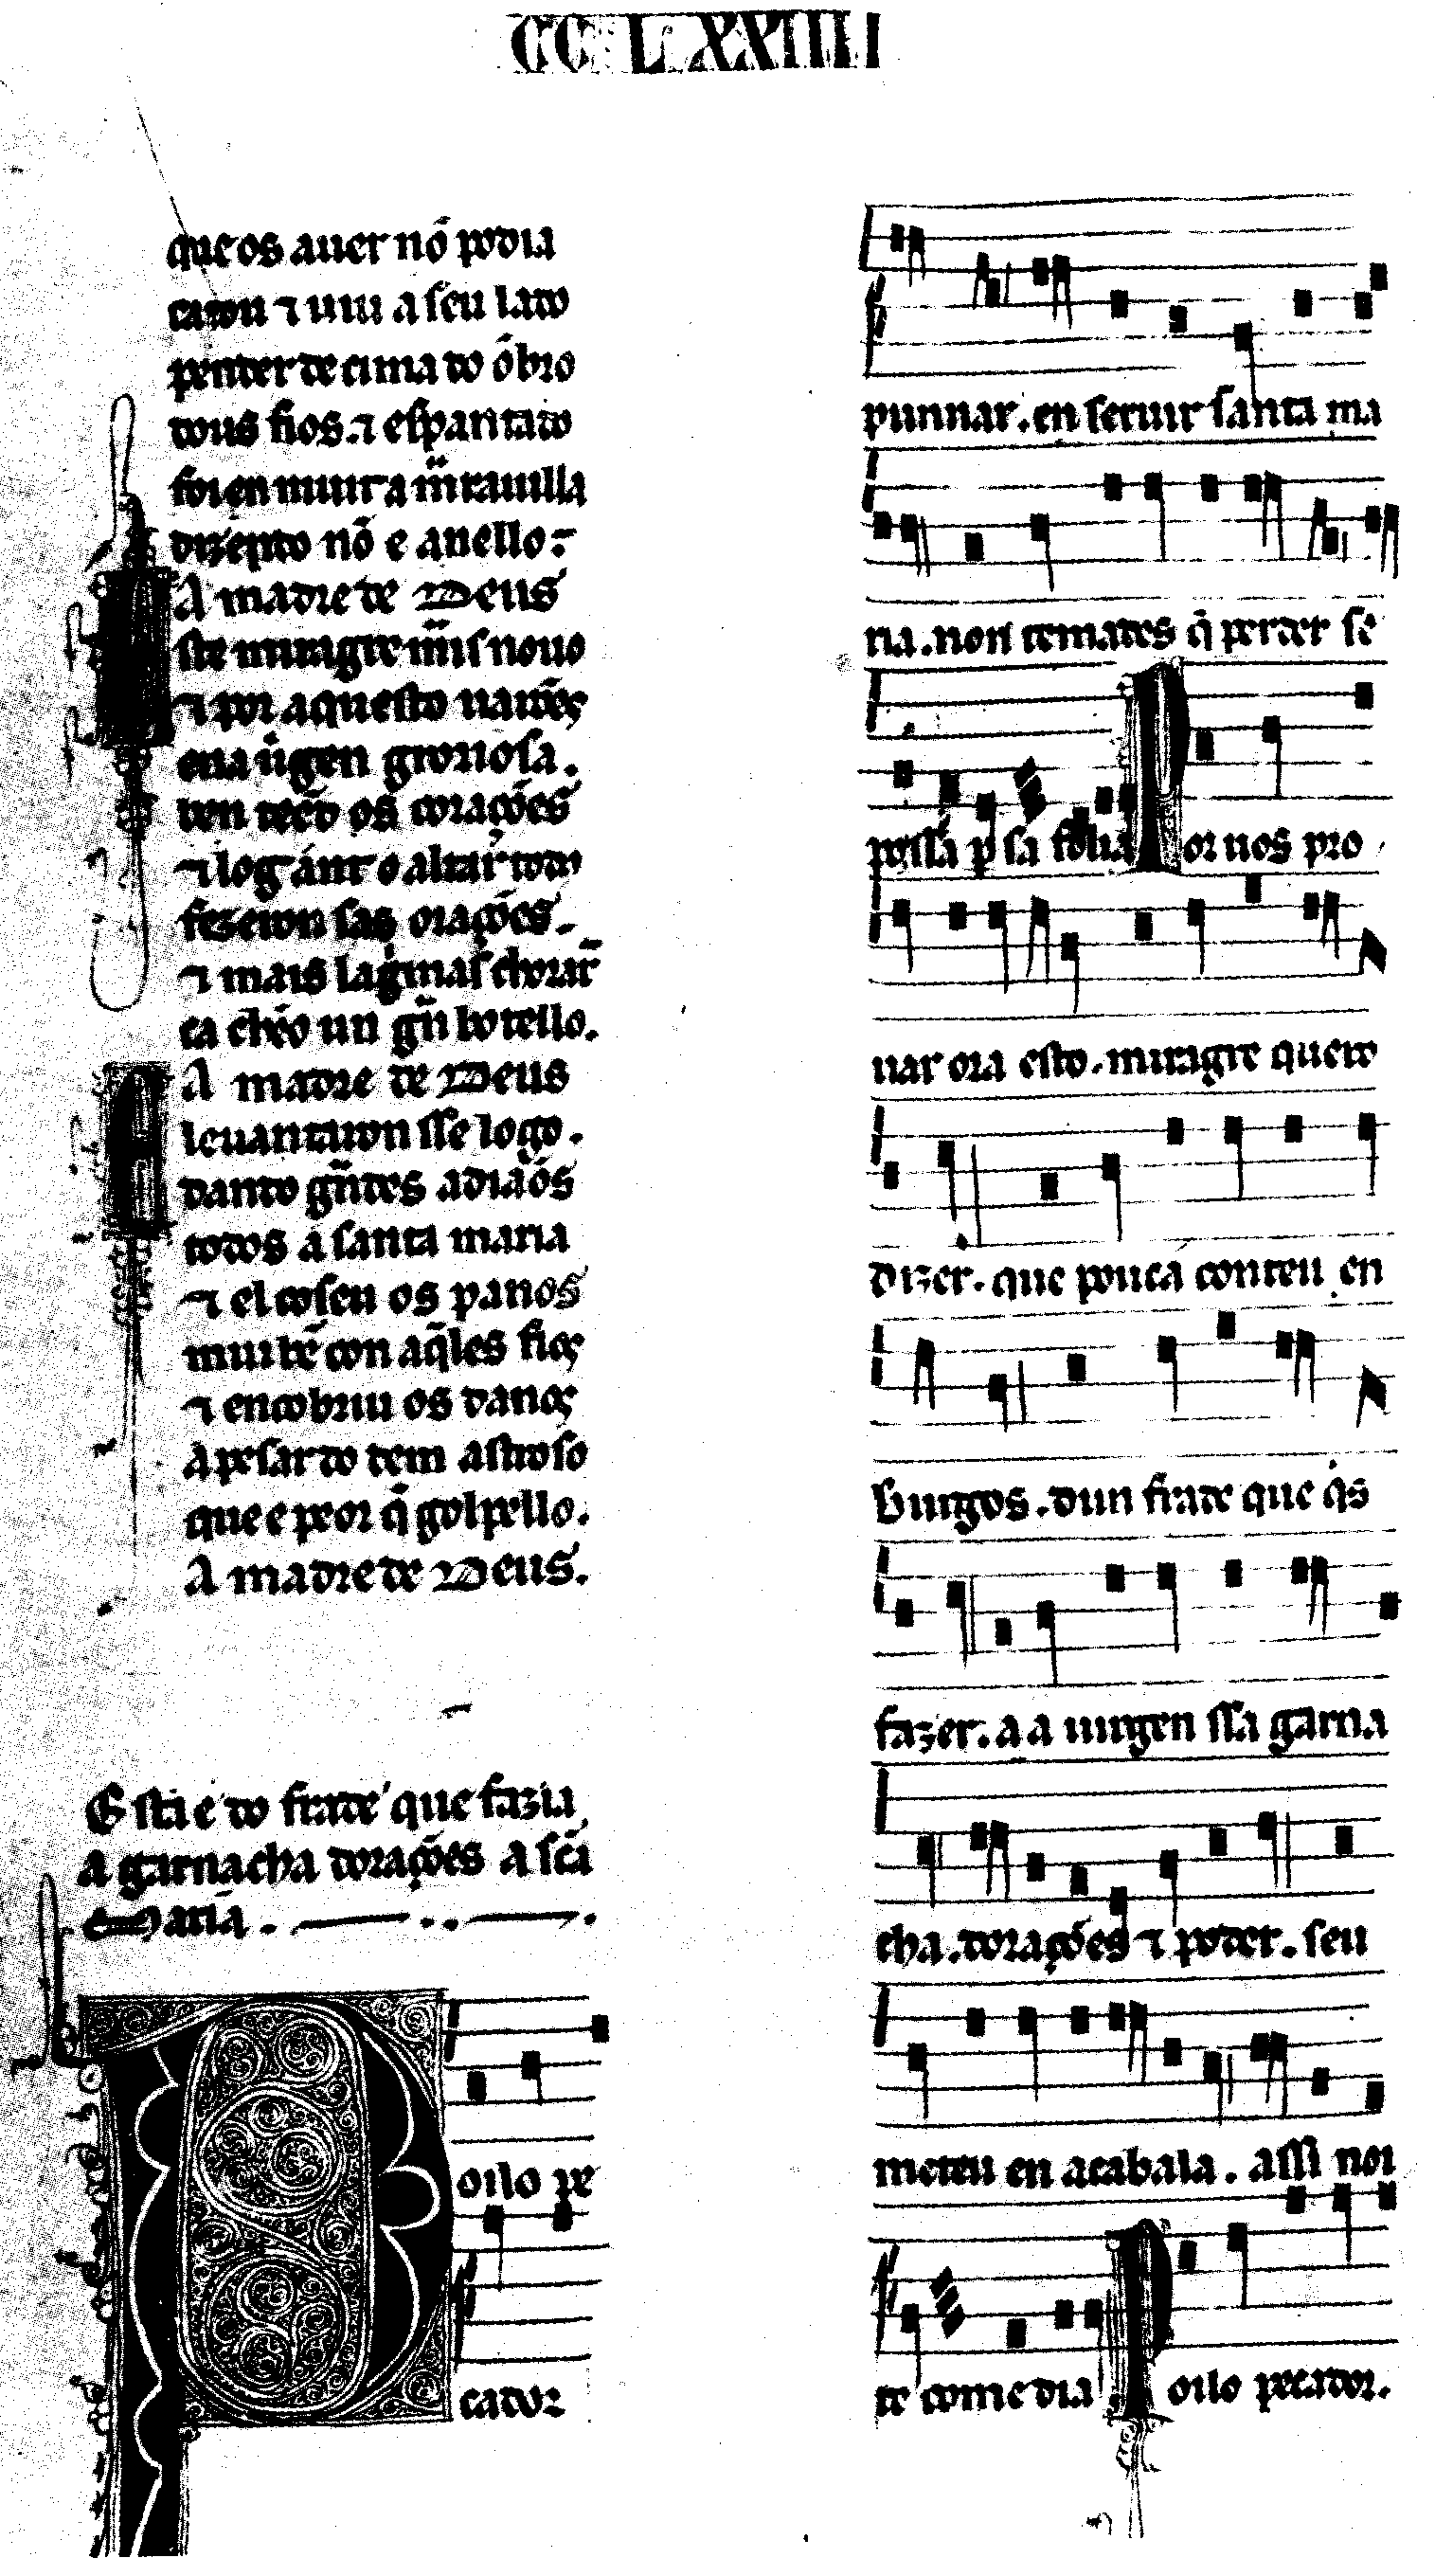 CCLXXIIII
que os auer nõ podia
caron ⁊ uiu a seu lado
pender de cima do õbro
dous fios. ⁊ espantado
foi en muit a m̃rauilla
dizẽndo nõ e anello:
A madre de Deus
Este miragre m̃is nouo
⁊ por aquesto uarões
ena uirgen groriosa.
ben teẽd os corações
⁊ log ánt o altar todos
fezeron sas orações.
⁊ mais lagrimas chorar̃
ca chẽo un gñ botello.
A madre de Deus
E leuantaron sse logo.
dando gñdes adiaós
todos a santa maria
⁊ el coseu os panos
mui bẽ con aq̃les fios
⁊ encobriu os danos
a pesar do dem astroso
que e peor q̃ golpello.
A madre de Deus.
Esta e do frade que fazia
a garnacha dorações a scã
Maria.
Poilo pe
cador
punnar. en seruir santa ma
ria. non temades q̃ perder se
possa p̱ sa folia Por uos pro
uar ora esto. miragre quero
dizer. que pouca conteu en
Burgos. dun frade que q̇s
fazer. a a uirgen ssa garna
cha. dorações ⁊ poder. seu
meteu en acabala. assi noi
te come dia Poilo pecador.